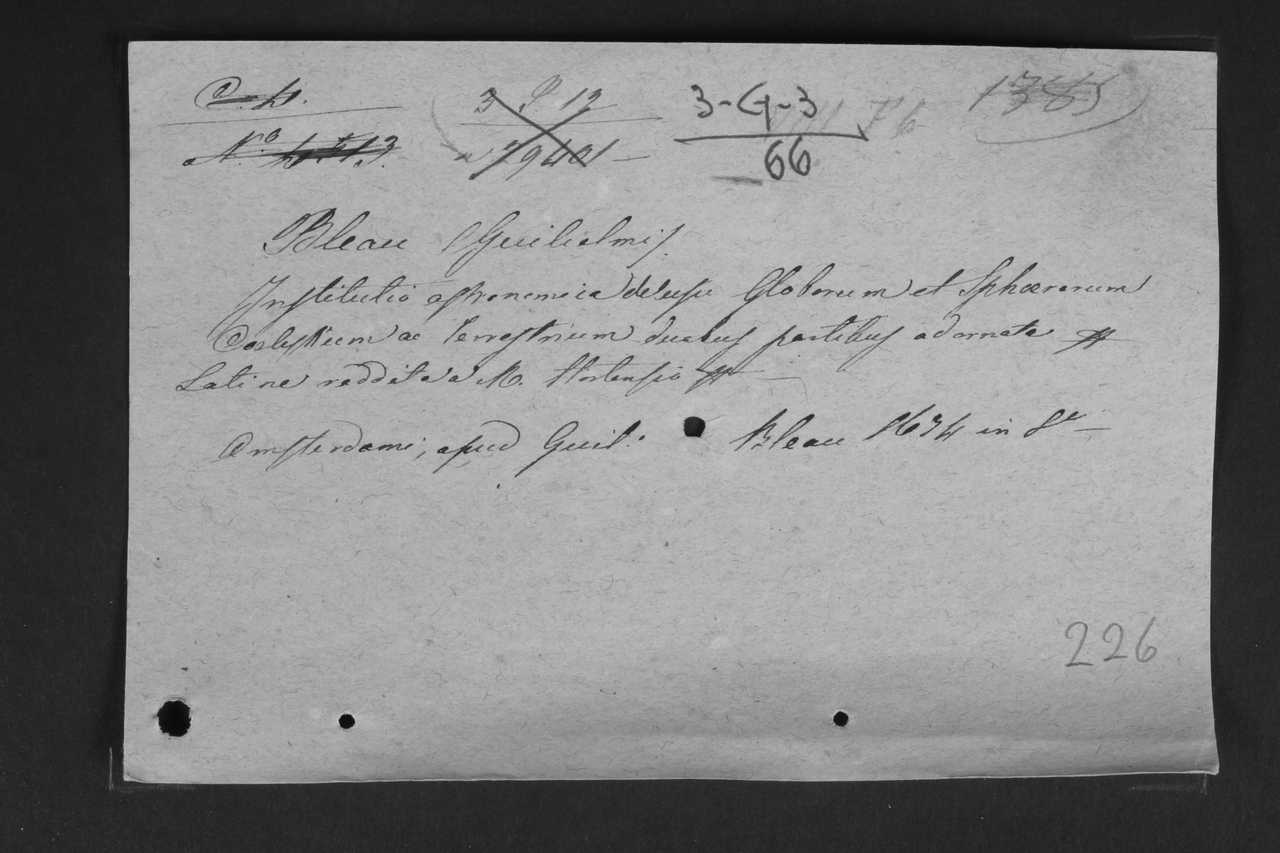 C. 4. 3 P 12 3-G-3 1385
N.º 79401 66
Bleau (Guilielmi)
Institutio astronomica de usu Globorum et Sphærarum
Coelestium ac Terrestrium duabus partibus adornata
Latine reddita a M. Hortensio
Amsterdami, apud Guil. Bleau 1634 in 8º
226